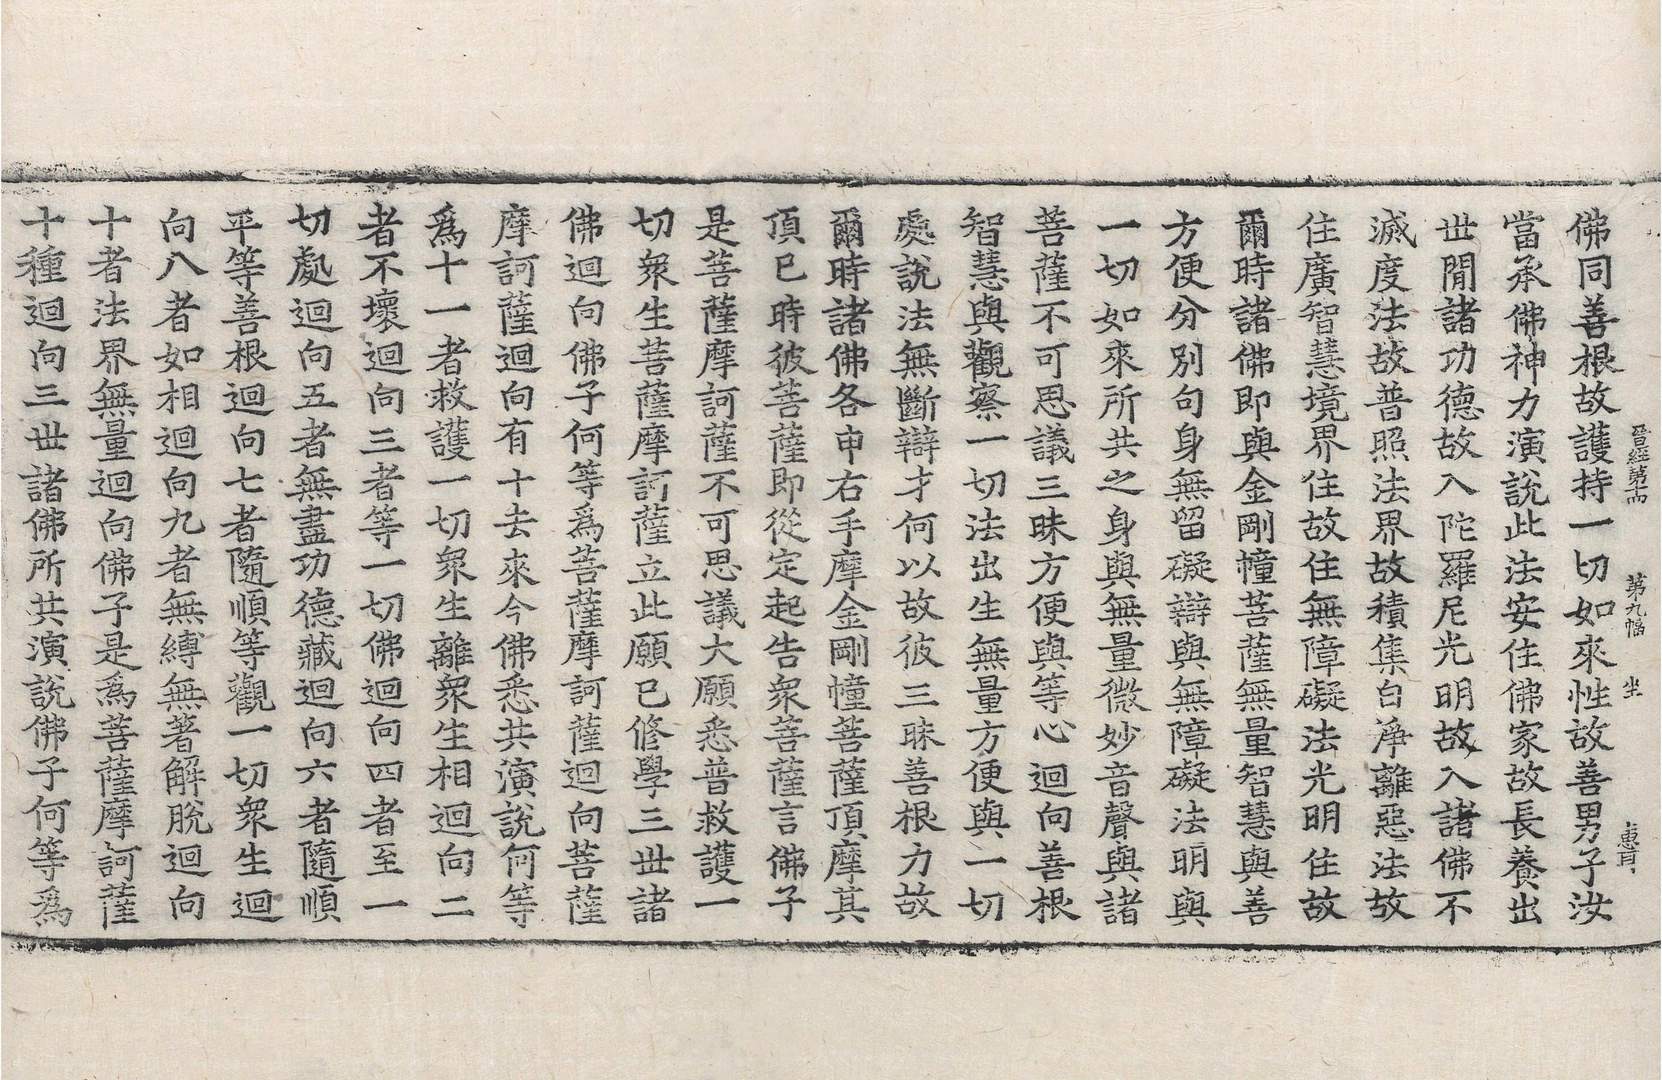 晉經第十四 第九幅 坐 惠月
佛同善根故護持一切如來性故善男子汝
當承佛神力演說此法安住佛家故長養出
世閒諸功德故入陀羅尼光明故入諸佛不
滅度法故普照法界故積集白淨離惡法故
住廣智慧境界住故住無障礙法光明住故
爾時諸佛即與金剛幢菩薩無量智慧與善
方便分別句身無留礙辯與無障礙法明與
一切如來所共之身與無量微妙音聲與諸
菩薩不可思議三昧方便與等心迴向善根
智慧與觀察一切法出生無量方便與一切
處說法無斷辯才何以故彼三昧善根力故
爾時諸佛各申右手摩金剛幢菩薩頂摩其
頂已時彼菩薩即從定起告衆菩薩言佛子
是菩薩摩訶薩不可思議大願悉普救護一
切衆生菩薩摩訶薩立此願已修學三世諸
佛迴向佛子何等爲菩薩摩訶薩迴向菩薩
摩訶薩迴向有十去來今佛悉共演說何等
爲十一者救護一切衆生離衆生相迴向二
者不壞迴向三者等一切佛迴向四者至一
切處迴向五者無盡功德藏迴向六者隨順
平等善根迴向七者隨順等觀一切衆生迴
向八者如相迴向九者無縛無著解脫迴向
十者法界無量迴向佛子是爲菩薩摩訶薩
十種迴向三世諸佛所共演說佛子何等爲